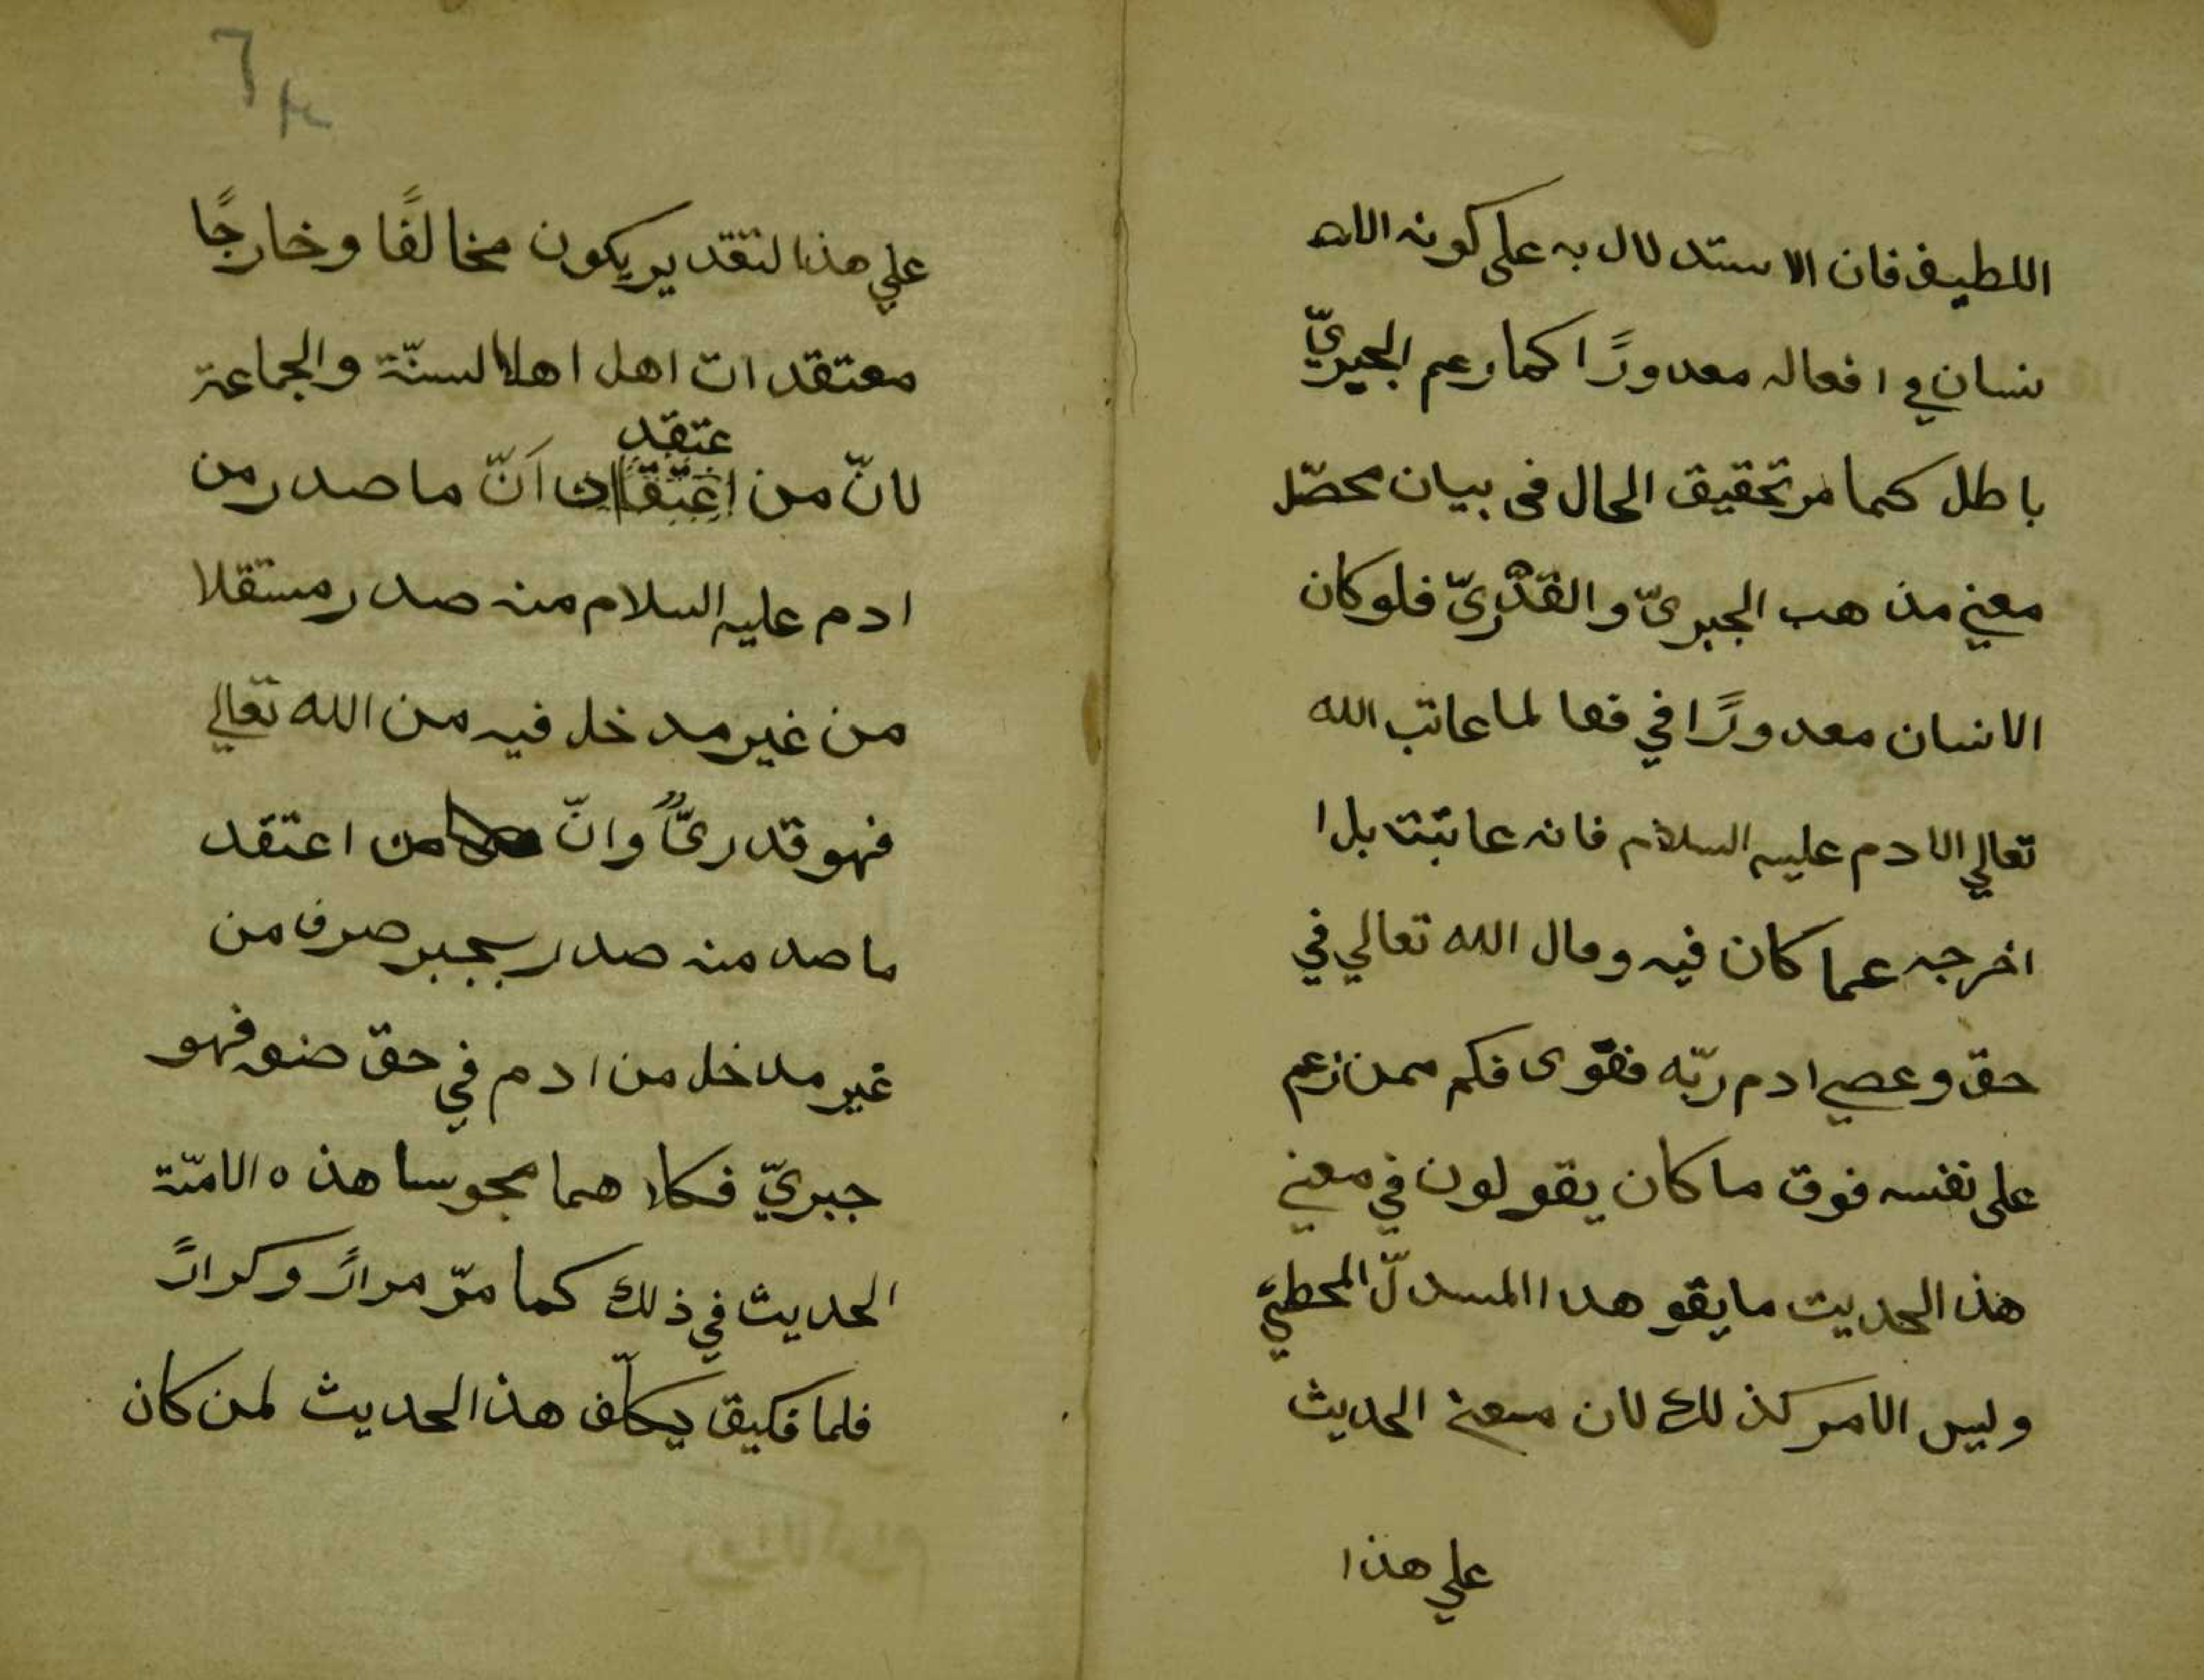 اللطيف فان الاستدلال به على كونه الا
نسان في افعاله معدورًا كما رعم الجبريّ
باطل كما مر تحقيق الحال فى بيان محصّل
معني مذهب الجبريّ والقدْريّ فلو كان
الانسان معدورًا في فعا لما عاتب الله
تعالي الادم عليه السلام فانه عاتبته بل ا
اخرجه عما كان فيه وقال الله تعالي في
حق وعصي ادم ربّه فغوى فكم ممن زعم
على نفسه فوق ما كان يقولون في معني
هذا الحديث ما يقو هدا المسدلّ المحطيء
وليس الامر كذلك لان معنى الحديث
علي هذا
٦٤
علي هذا لتقدير يكون مخالفًا وخارجًا
معتقدات اهل اهلا لسنّة والجماعة
عتقد
لانّ من انّ ما صدر من
ادم عليه السلام منه صدر مستقلا
من غير مدخل فيه من الله تعالي
فهو قدريٌّ وانّ من اعتقد
ما صد منه صدر بجبر صرف من
غير مدخل من ادم في حق صنعه فهو
جبريّ فكلا هما مجوسا هذه الامّة
الحديث في ذلك كما مرّ مرارً وكرارً
فلما فكيق يكلّف هذا الحديث لمن كان